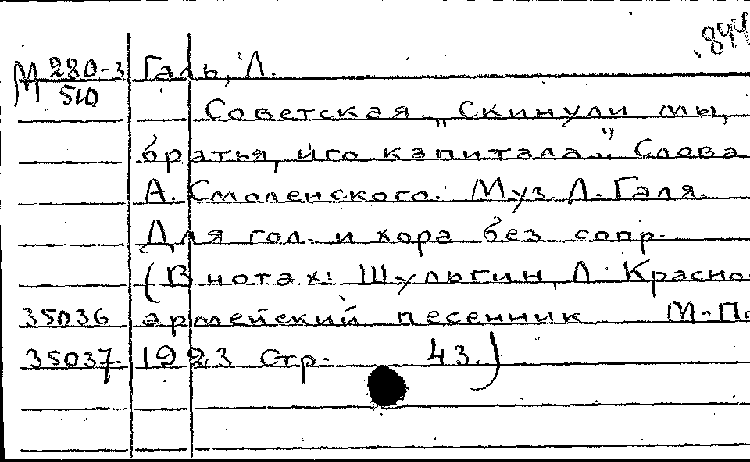 .844
М 280-3 Галь, Л.
510
Советская „Скинули мы,
братья, иго капитала". Слова
А. Смоленского. Муз Л. Галя.
Для гол. и хора без сопр.
(В нотах: Шульгин, Л. Красно-
35036 армейский песенник М-П
35037 1923 Стр. 43.)